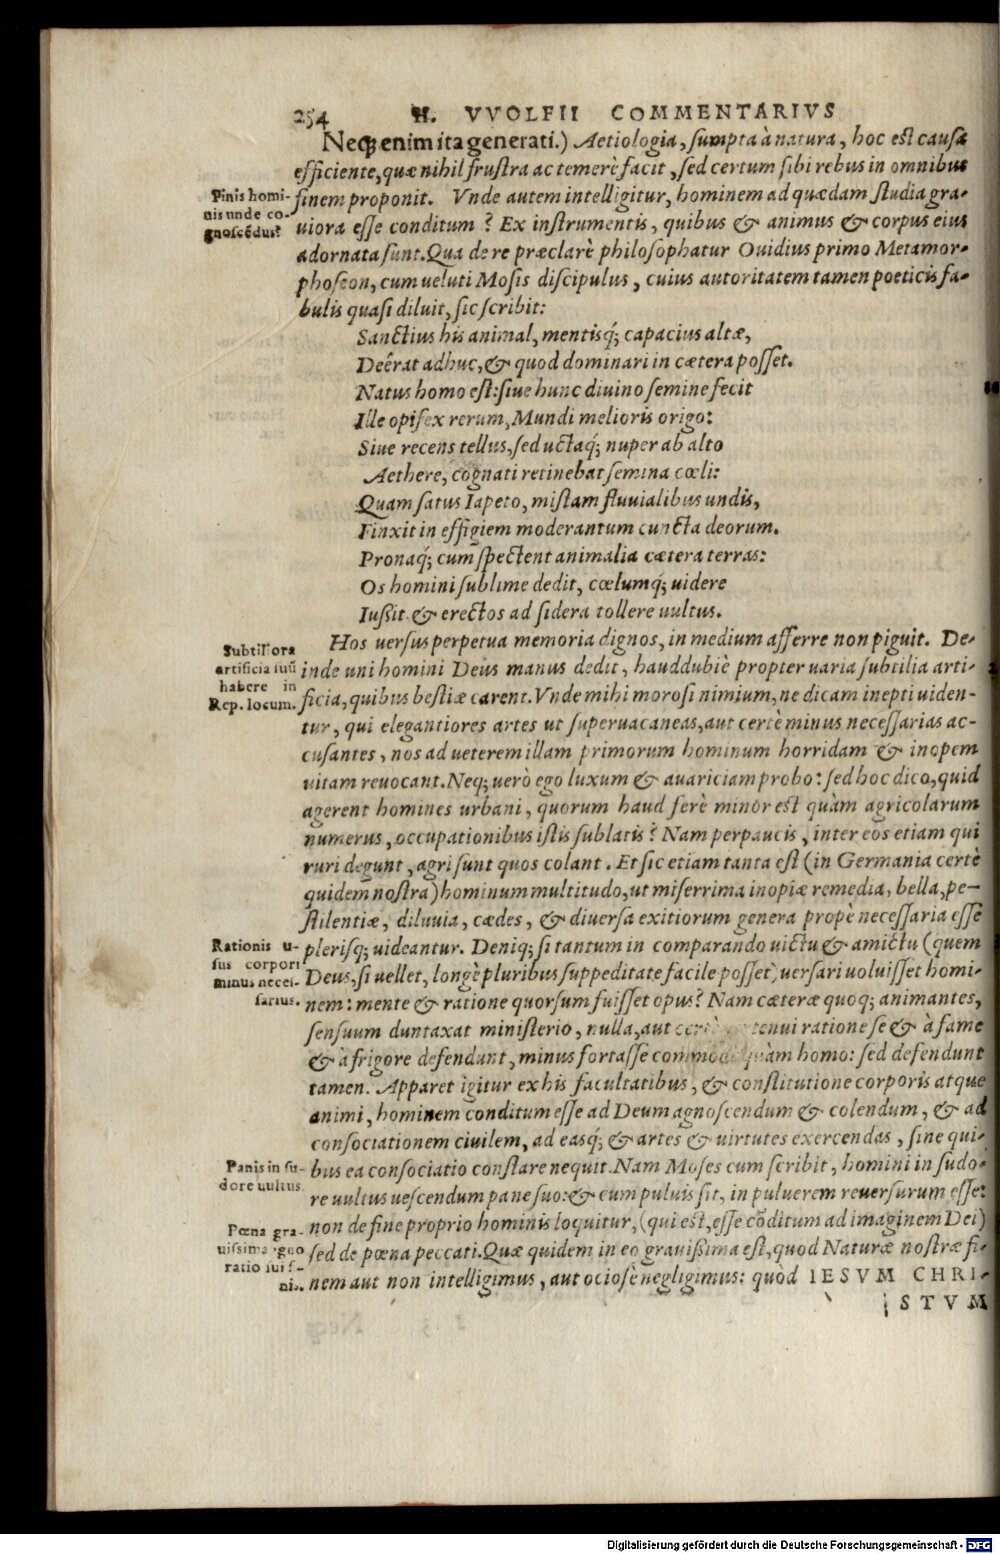 254 H. VVOLFII COMMENTARIVS
Neq; enim ita generati.) Aetiologia, sumpta à natura, hoc est causa
efficiente, quæ nihil frustra ac temerè facit, sed certum sibi rebus in omnibus
Finis homi-
nis unde co-
gnoscēdus?
finem proponit. Vnde autem intelligitur, hominem ad quædam studia gra-
uiora esse conditum? Ex instrumentis, quibus & animus & corpus eius
adornata sunt. Qua de re præclarè philosophatur Ouidius primo Metamor-
phoseon, cum ueluti Mosis discipulus, cuius autoritatem tamen poeticis fa-
bulis quasi diluit, sic scribit:
Sanctius his animal, mentisq́; capacius altæ,
Deérat adhuc, & quod dominari in cætera posset.
Natus homo est: siue hunc diuino semine fecit
Ille opifex rerum, Mundi melioris origo:
Siue recens tellus, seductaq́; nuper ab alto
Aethere, cognati retinebat semina cœli:
Quam satus Iapeto, mistam fluuialibus undis,
Finxit in effigiem moderantum cuncta deorum.
Pronaq́; cum spectent animalia cætera terras:
Os homini sublime dedit, cœlumq́; uidere
Iußit & erectos ad sidera tollere uultus.
Hos uersus perpetua memoria dignos, in medium afferre non piguit. De-
Subtiliora
artificia suū
habere in
Rep. locum.
inde uni homini Deus manus dedit, hauddubiè propter uaria subtilia arti-
ficia, quibus bestiæ carent. Vnde mihi morosi nimium, ne dicam inepti uiden-
tur, qui elegantiores artes ut superuacaneas, aut certè minus necessarias ac-
cusantes, nos ad ueterem illam primorum hominum horridam & inopem
uitam reuocant. Neq; uerò ego luxum & auariciam probo: sed hoc dico, quid
agerent homines urbani, quorum haud ferè minor est quàm agricolarum
numerus, occupationibus istis sublatis? Nam perpaucis, inter eos etiam qui
ruri degunt, agri sunt quos colant. Et sic etiam tanta est (in Germania certè
quidem nostra) hominum multitudo, ut miserrima inopiæ remedia, bella, pe-
stilentiæ, diluuia, cædes, & diuersa exitiorum genera propè necessaria esse
Rationis u-
sus corpori
minus neces-
sarius.
plerisq; uideantur. Deniq; si tantum in comparando uictu & amictu (quem
Deus, si uellet, longè pluribus suppeditate facile posset) uersari uoluisset homi-
nem: mente & ratione quorsum fuisset opus? Nam cæteræ quoq; animantes,
sensuum duntaxat ministerio, nulla, aut certè tenui ratione se & à fame
& à frigore defendunt, minus fortasse commodè quàm homo: sed defendunt
tamen. Apparet igitur ex his facultatibus, & constitutione corporis atque
animi, hominem conditum esse ad Deum agnoscendum & colendum, & ad
consociationem ciuilem, ad easq́; & artes & uirtutes exercendas, sine qui-
Panis in su-
dore uultus.
bus ea consociatio constare nequit. Nam Moses cum scribit, homini in sudo-
re uultus uescendum pane suo: & cum puluis sit, in puluerem reuersurum esse:
Pœna gra-
uissima igno
ratio sui f-
nis.
non de fine proprio hominis loquitur, (qui est, esse cōditum ad imaginem Dei)
sed de pœna peccati. Quæ quidem in eo grauißima est, quod Naturæ nostræ fi-
nem aut non intelligimus, aut ociosè negligimus: quòd IESVM CHRI-
STVM
Digitalisierung gefördert durch die Deutsche Forschungsgemeinschaft - DFG